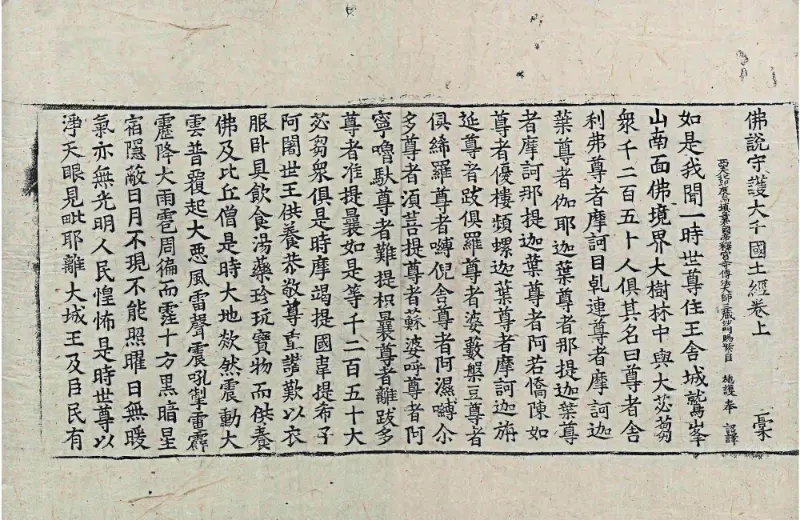 佛說守護大千國土經卷上　稾
西天北印度烏塡曩國帝釋宮寺傳法大師三藏沙門賜紫臣　施護奉　詔譯
如是我聞一時世尊住王舍城鷲峯
山南面佛境界大樹林中與大苾芻
衆千二百五十人俱其名曰尊者舍
利弗尊者摩訶目乹連尊者摩訶迦
葉尊者伽耶迦葉尊者那提迦葉尊
者摩訶那提迦葉尊者阿若憍陳如
尊者優樓頻螺迦葉尊者摩訶迦旃
延尊者跋俱羅尊者婆藪槃豆尊者
俱絺羅尊者嚩倪舍尊者阿濕嚩尒
多尊者湏菩提尊者蘇婆呼尊者阿
寧嚕馱尊者難提枳曩尊者離跋多
尊者准提曩如是等千二百五十大
苾芻衆俱是時摩竭提國韋提希子
阿闍世王供養恭敬尊重讚歎以衣
服卧具飲食湯藥珎玩寶物而供養
佛及比丘僧是時大地欻然震動大
雲普覆起大惡風雷聲震吼掣電霹
靂降大雨雹周徧而霔十方黑暗星
宿隱蔽日月不現不能照曜日無暖
氣亦無光明人民惶怖是時世尊以
淨天眼見毗耶離大城王及臣民有